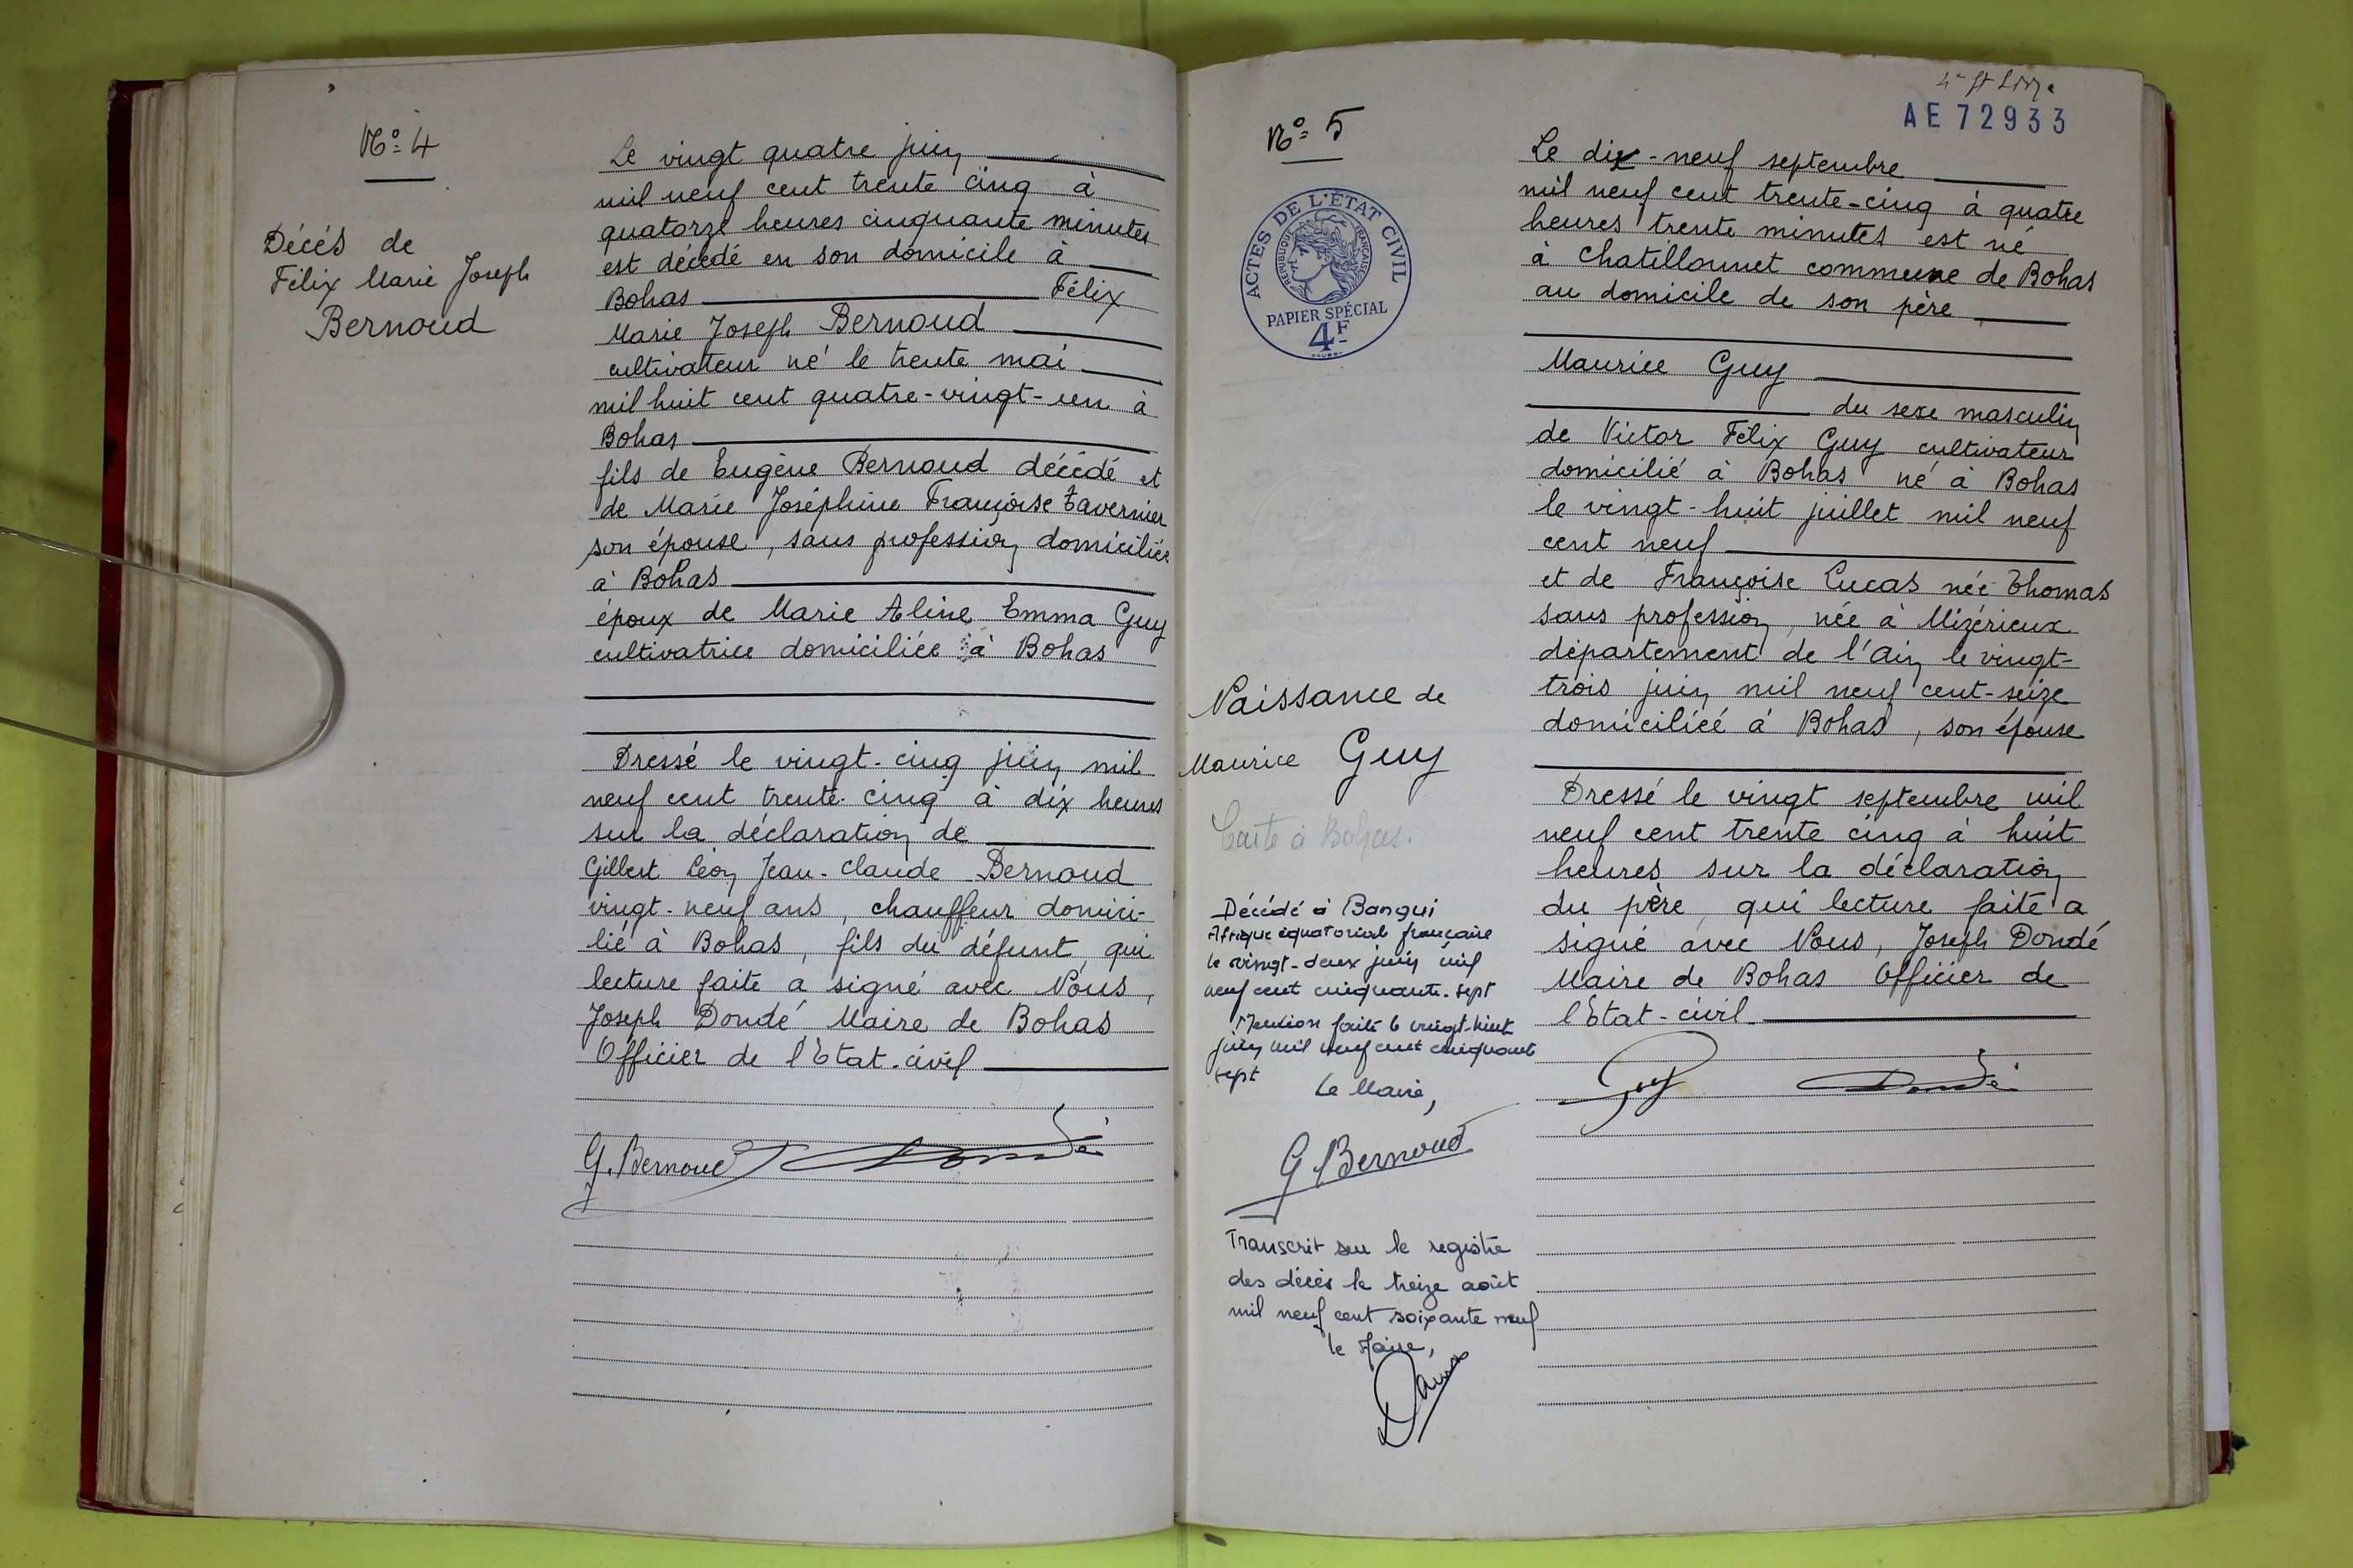 N° 4
Décès de
Félix Marie Joseph
Bernoud
Le vingt quatre juin
mil neuf cent trente cinq à
quatorze heures cinquante minutes
est décédé en son domicile à
Bohas Félix
Marie Joseph Bernoud
cultivateur né le trente mai
mil huit cent quatre-vingt-un à
Bohas
fils de Eugène Bernoud décédé et
de Marie Joséphine Françoise Tavernier
son épouse, sans profession domiciliée
à Bohas
époux de Marie Aline Emma Guy
cultivatrice domiciliée à Bohas
Dressé le vingt-cinq juin mil
neuf cent trente-cinq à dix heures
sur la déclaration de
Gilbert Léon Jean-Claude Bernoud
vingt-neuf ans, chauffeur domici-
lié à Bohas, fils du défunt, qui
lecture faite a signé avec Nous,
Joseph Dondé Maire de Bohas
Officier de l'Etat-civil
G. Bernoud Dondé
AE 72933
N° 5
ACTES DE L'ÉTAT CIVIL
RÉPUBLIQUE FRANÇAISE
PAPIER SPÉCIAL
4F
Naissance de
Maurice Guy
Décédé à Bangui
Afrique équatoriale française
le vingt-deux juin mil
neuf cent cinquante-sept
Mention faite le vingt-huit
juin mil neuf cent cinquante
sept
Le Maire,
G Bernoud
Transcrit sur le registre
des décès le treize août
mil neuf cent soixante neuf
le Maire,
Le dix-neuf septembre
mil neuf cent trente-cinq à quatre
heures trente minutes est né
à Chatillonnet commune de Bohas
au domicile de son père
Maurice Guy
du sexe masculin
de Victor Félix Guy cultivateur
domicilié à Bohas né à Bohas
le vingt-huit juillet mil neuf
cent neuf
et de Françoise Lucas née Thomas
sans profession, née à Mizérieux
département de l'Ain le vingt-
trois juin mil neuf cent-seize
domiciliée à Bohas, son épouse
Dressé le vingt septembre mil
neuf cent trente cinq à huit
heures sur la déclaration
du père, qui lecture faite a
signé avec Nous, Joseph Dondé
Maire de Bohas Officier de
l'Etat-civil
Guy Dondé